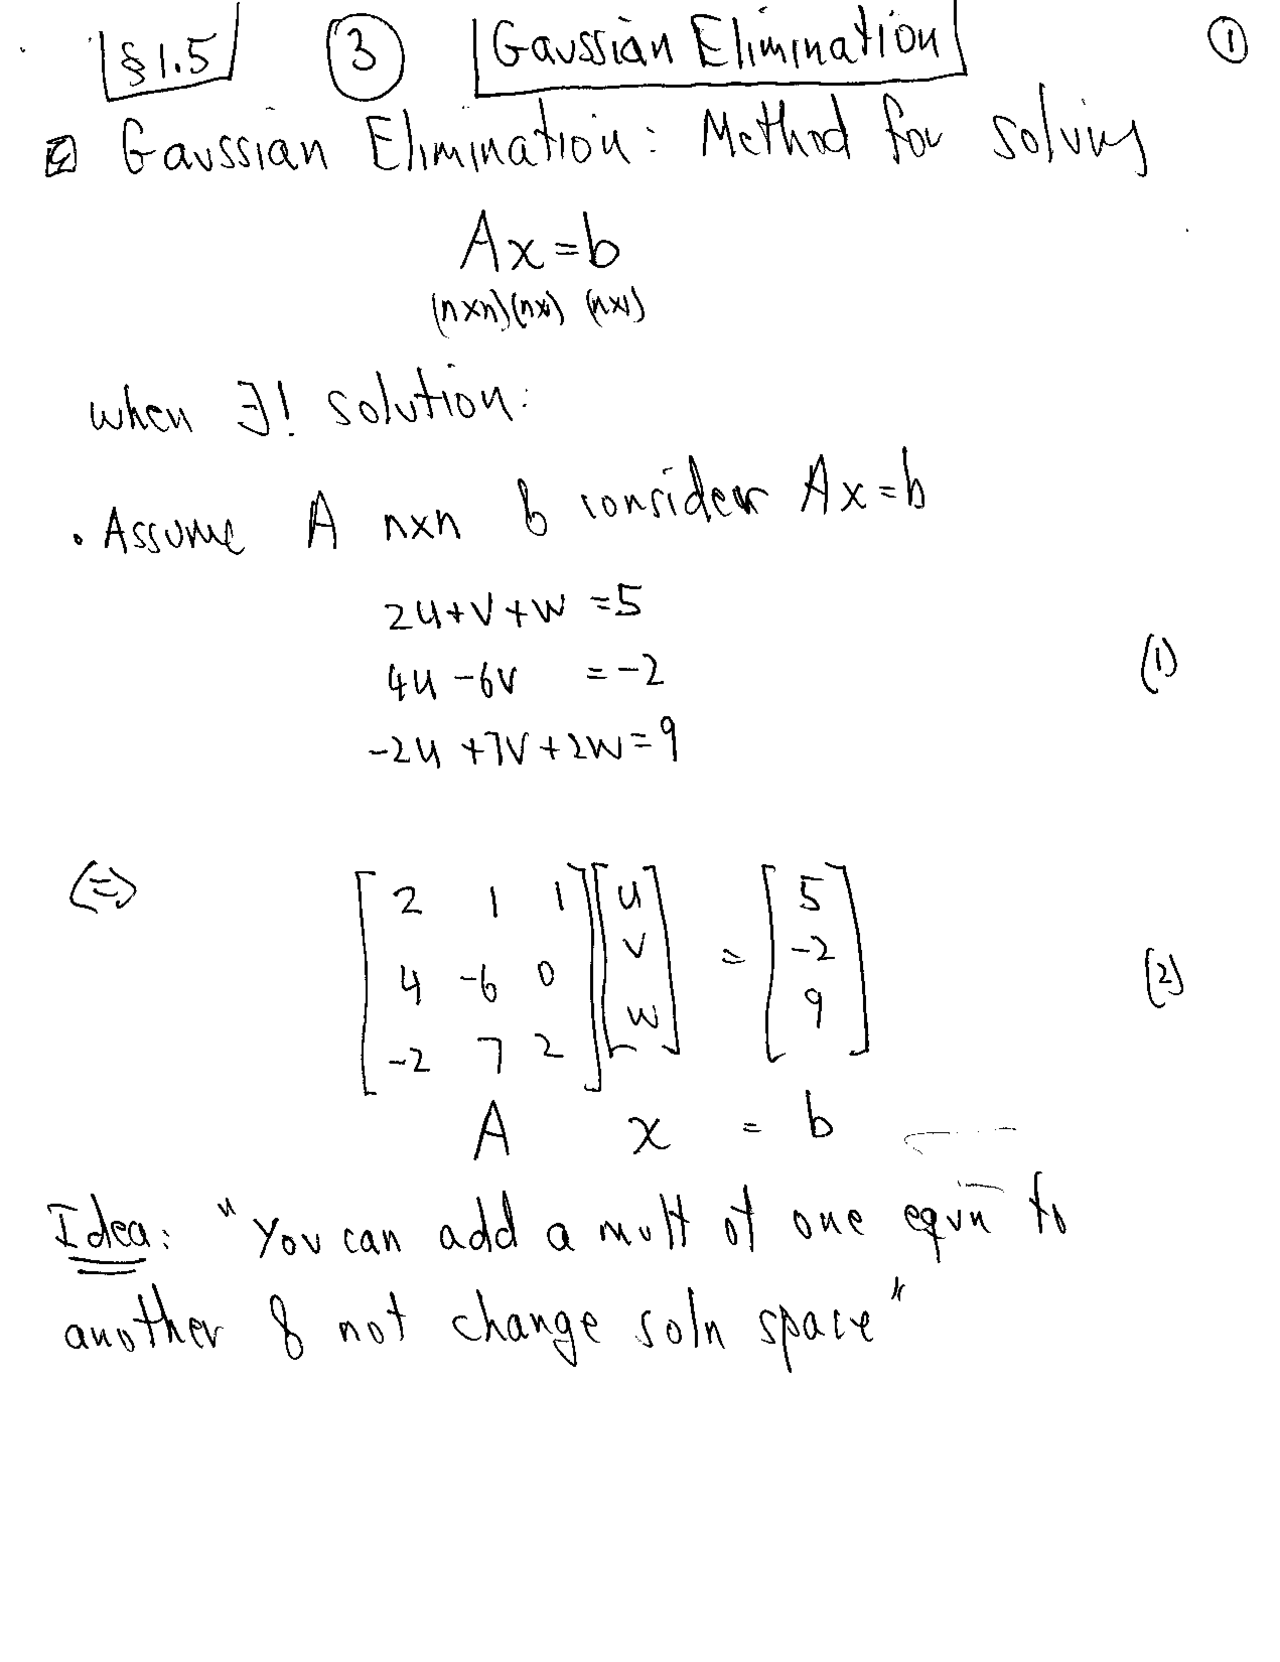 §1.5 ③ Gaussian Elimination ①
Gaussian Elimination: Method for solving
Ax=b
(n×n)(n×1) (n×1)
when ∃! solution:
• Assume A n×n & consider Ax=b
2u+v+w =5
4u -6v = -2 (1)
-2u +7v+2w=9
(=) [ 2 1 1 ] [ u ] = [ 5 ]
[ 4 -6 0 ] [ v ] [ -2 ] (2)
[ -2 7 2 ] [ w ] [ 9 ]
A x = b
Idea: "You can add a mult of one eqvn to
another & not change soln space"